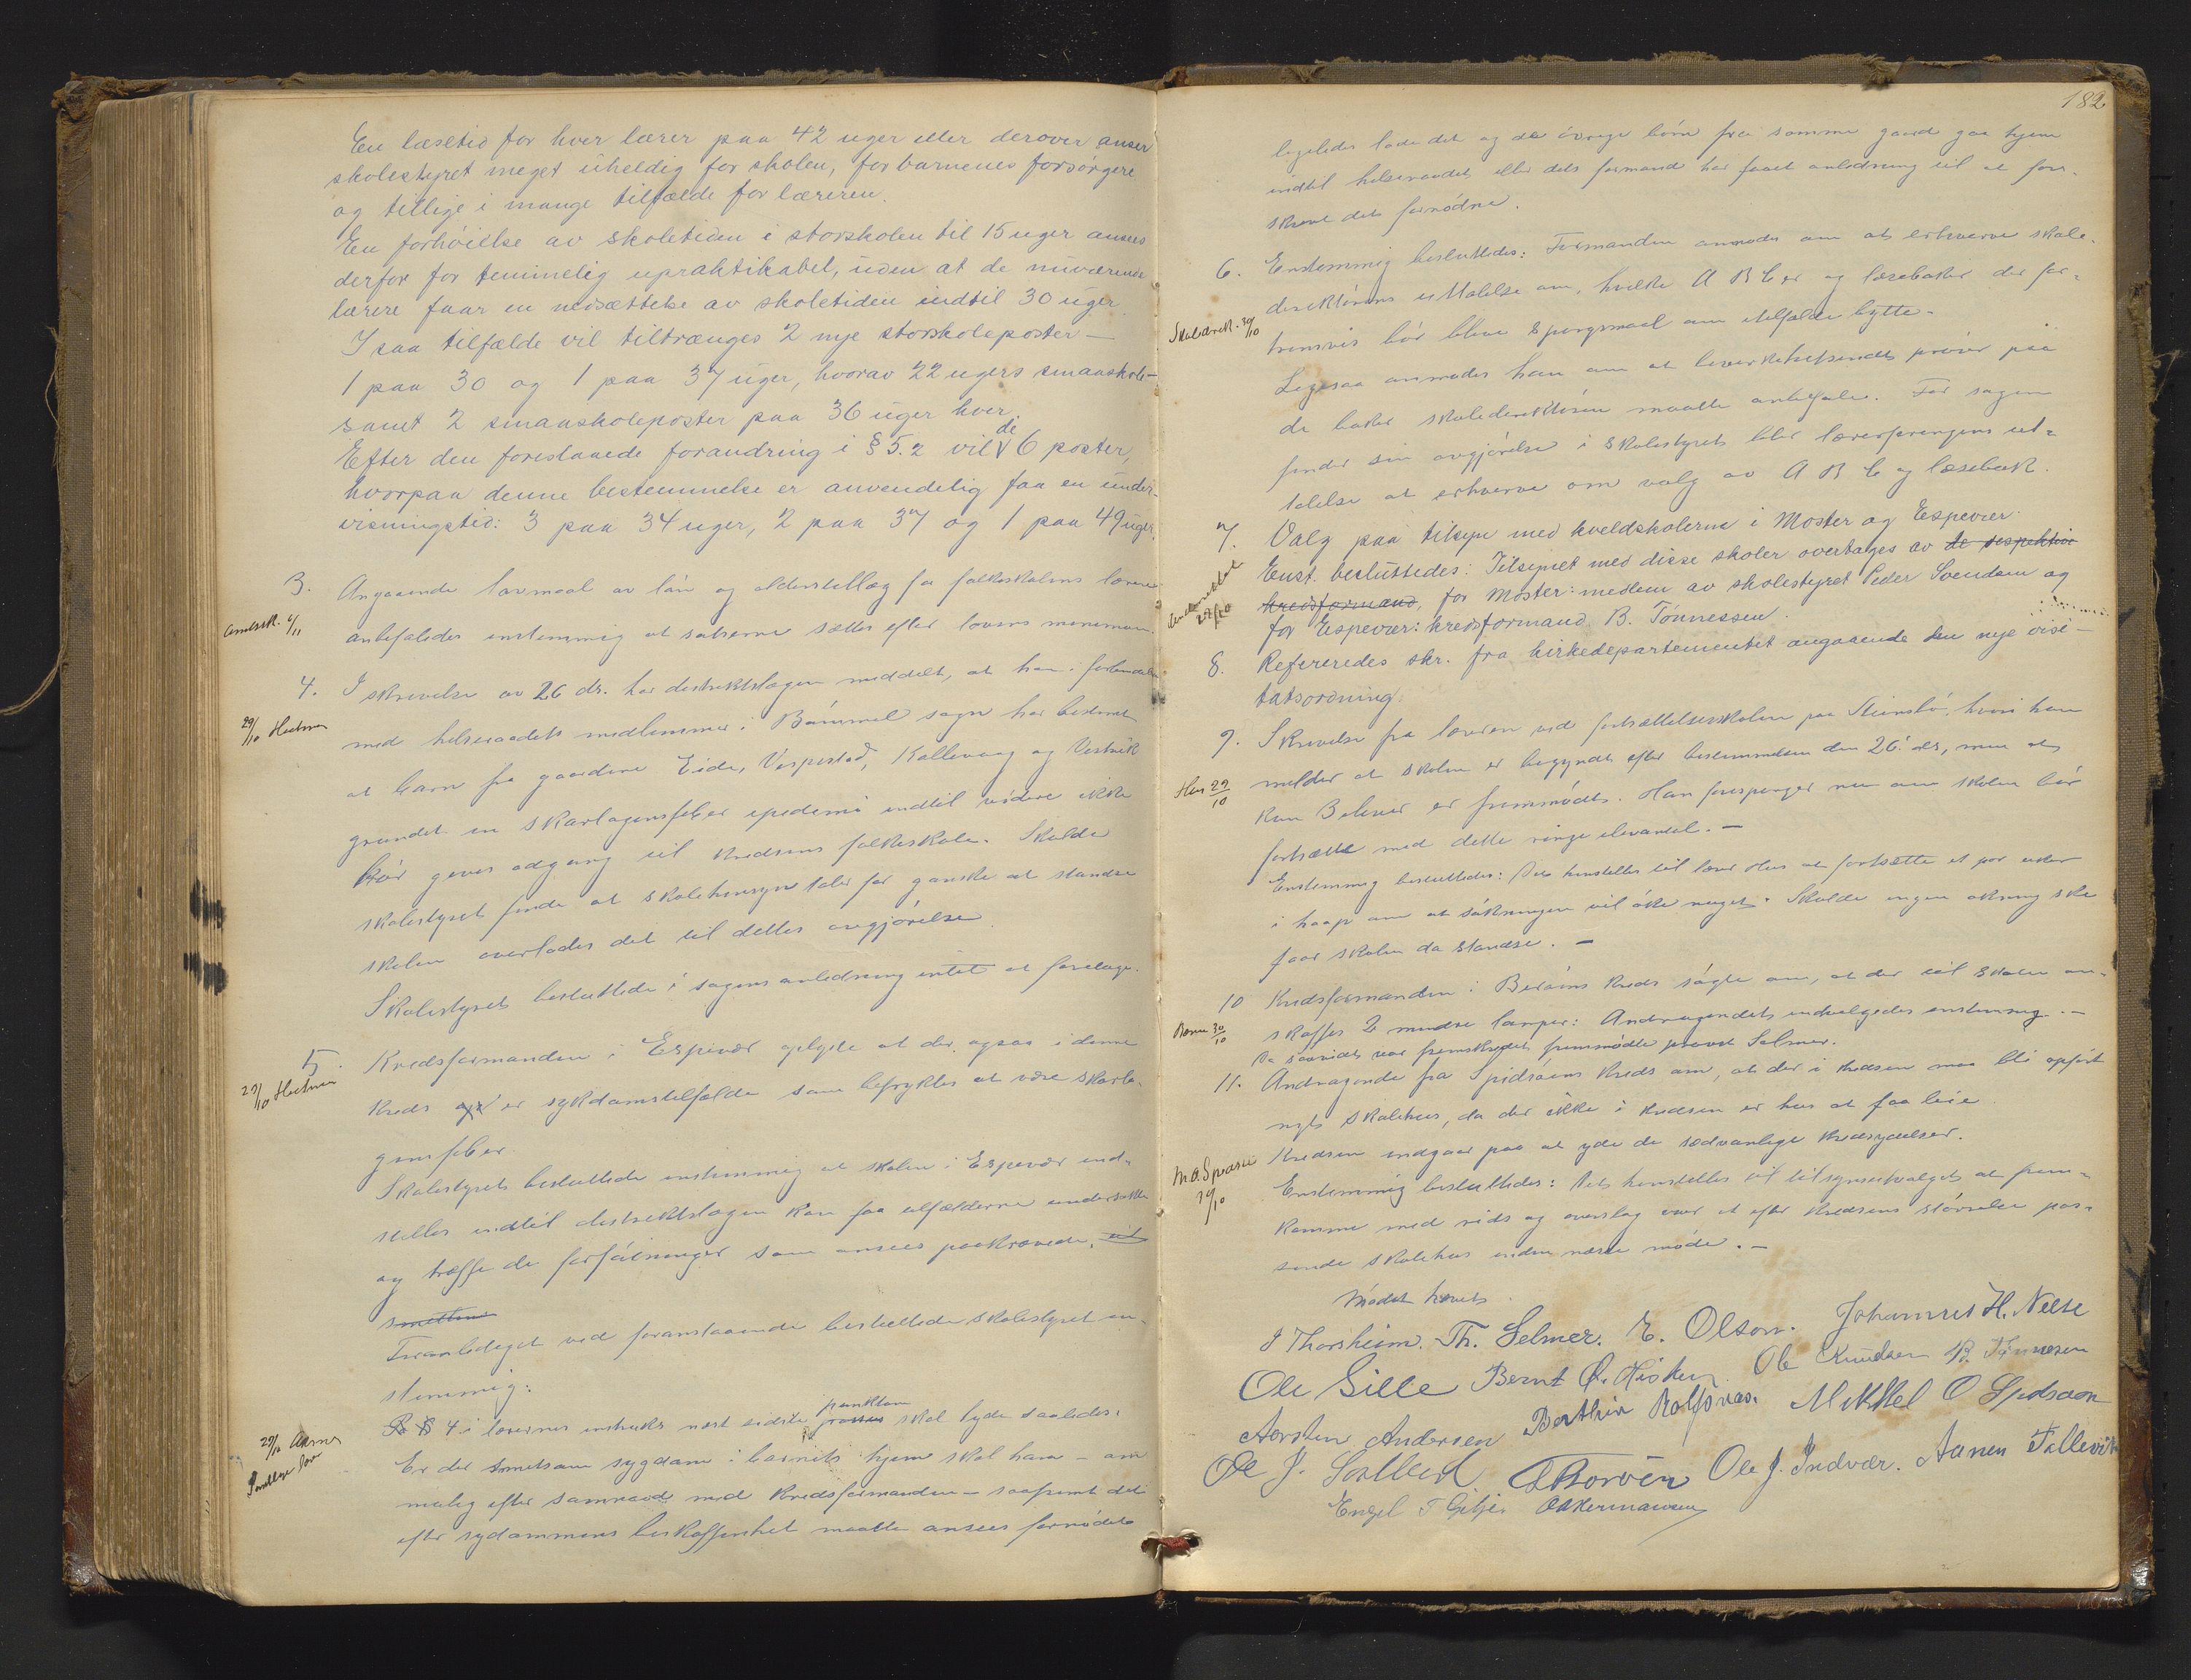 En læsetid for hver lærer paa 42 uger eller derover anser
skolestyret meget uheldig for skolen, for barnenes forsørgere
og tillige i mange tilfælde for læreren.
En forhöielse av skoletiden i storskolen til 15 uger ansees
derfor for temmelig upraktikabel, uden at de nuværende
lærere faar en nedsættelse av skoletiden indtil 30 uger.
I saa tilfælde vil tiltrænges 2 nye storskoleposter -
1 paa 30 og 1 paa 37 uger, hvorav 22 ugers smaaskole-
samt 2 smaaskoleposter paa 36 uger hver.
Efter den foreslaaede forandring i § 5.2 vil de 6 poster,
hvorpaa denne bestemmelse er anvendelig faa en under-
visningstid: 3 paa 34 uger, 2 paa 37 og 1 paa 49 uger.
3. Angaaende lovmaal av lön og alderstillæg for folkeskolens lærere
anbefaledes enstemmig at satserne sættes efter lovens minimum.
4. I skrivelse av 26 ds. har distriktslægen meddelt, at han i forbindelse
29/10
med helseraadets medlemmer i Bömmel sogn har bestemt
at barn fra gaardene Eide, Vespestad, Kallevaag og Vestvik
grundet en skarlagensfeber epidemi indtil videre ikke
bör gives adgang til kredsens folkeskole. Skulde
skolestyret finde at skolehensyn taler for ganske at standse
skolen overlades det til dettes avgjörelse.
Skolestyret besluttede i sagens anledning intet at foretage.
5. Kredsformanden i Espevær oplyste at der ogsaa i denne
29/10
kreds er sykdomstilfælde som befrygtes at være skarla-
gensfeber.
Skolestyret besluttede enstemmig at skolen i Espevær ind-
stilles indtil distriktslægen kan faa tilfælderne undersökt
og træffe de forföininger som ansees paakrævede.
Foranlediget ved foranstaaende besluttede skolestyret en-
stemmig:
§ 4 i lærernes instruks næst sidste punktum skal lyde saaledes:
29/10
Er der smitsom sygdom i barnets hjem skal han - om
mulig efter samraad med kredsformanden - saafremt det
efter sydommens beskaffenhet maatte ansees fornödet
182
ligeledes lade det og de övrige börn fra samme gaard gaa hjem
indtil helseraadet eller dets formand har faaet anledning til at fore-
skrive det fornödne.
6. Enstemmig besluttedes: Formanden anmodes om at erhverve skole-
direktörens uttalelse om, hvilke A B C er og læseböker der for-
Skoledirek. 30/10
trinsvis bör blive spörgsmaal om i tilfælde bytte.
Ligesaa anmodes han om at bevirke tilsendt pröver paa
de böker skoledirektören maatte anbefale. För sagen
finder sin avgjörelse i skolestyret blir lærerforeningens ut-
talelse at erhverve om valg av A B C og læsebok.
7. Valg paa tilsyn med kveldskolerne i Moster og Espevær.
Enst. besluttedes: Tilsynet med disse skoler overtages av de respektive
kredsformænd, for Moster: medlem av skolestyret Peder Svendsen og
for Espevær: kredsformand B. Tönnessen.
8. Refereredes skr. fra kirkedepartementet angaaende den nye visi-
tatsordning.
9. Skrivelse fra læreren ved fortsættelsesskolen paa Steinsbö, hvori han
Hus 29/10
melder at skolen er begyndt efter bestemmelsen den 26. ds, men at
kun 3 elever er fremmödt. Han forespörger nu om skolen bör
fortsætte med dette ringe elevantal. -
Enstemmig besluttedes: Det henstilles til lærer Hus at fortsætte et par uker
i haap om at sökningen vil öke noget. Skulde ingen ökning ske
faar skolen da standse. -
10 Kredsformanden i Beröens kreds sögte om, at der til skolen an-
30/10
skaffes 2 mindre lamper: Andragendet indvilgedes enstemmig. -
Da saavidt var fremskredet fremmödte provst Selmer.
11. Andragende fra Spidsöens kreds om, at der i kredsen maa bli opfört
nyt skolehus, da der ikke i kredsen er hus at faa leie.
Kredsen indgaar paa at yde de sædvanlige kredsydelser.
Enstemmig besluttedes: Det henstilles til tilsynsutvalget at frem-
komme med rids og overslag over et efter kredsens störrelse pas-
sende skolehus inden næste möde. -
Mödet hævet.
J Thorsheim. Th. Selmer. E. Olson. Johannes H. Nelse
Ole Gille Bernt Ö. Hisken Ole Knudsen B. Tönnesen
Torsten Andersen Berthin Rolfsnæs. Mikkel O Spidsøen
Ole J. Ole J. Indvær. Aanen Tallevik
Engel T Gitje